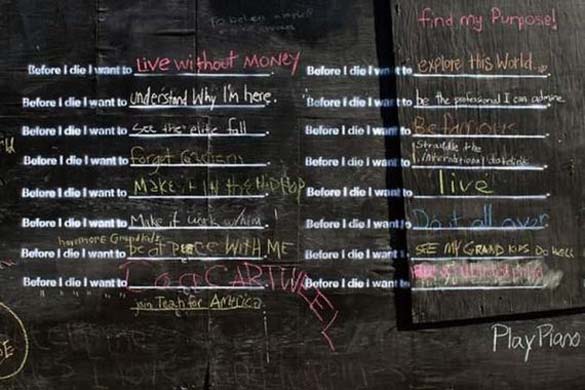 find my Purpose!
Before I die I want to Live without MONEY
Before I die I want to understand Why I'm here.
Before I die I want to see the elite fall
Before I die I want to forget
Before I die I want to Make it in the HipHop
Before I die I want to Make it work
have more Grandkids
Before I die I want to be at PEACE WITH ME
Before I die I want to Do a CARTWHEEL
join Teach for America
Before I die I want to explore this World.
Before I die I want to be the professional I can admire
Before I die I want to Be famous
Before I die I want to Straddle the
International dateline
Before I die I want to live
Before I die I want to Do it all over
Before I die I want to SEE MY GRAND KIDS DO WELL
Before I die I want to
Play Piano